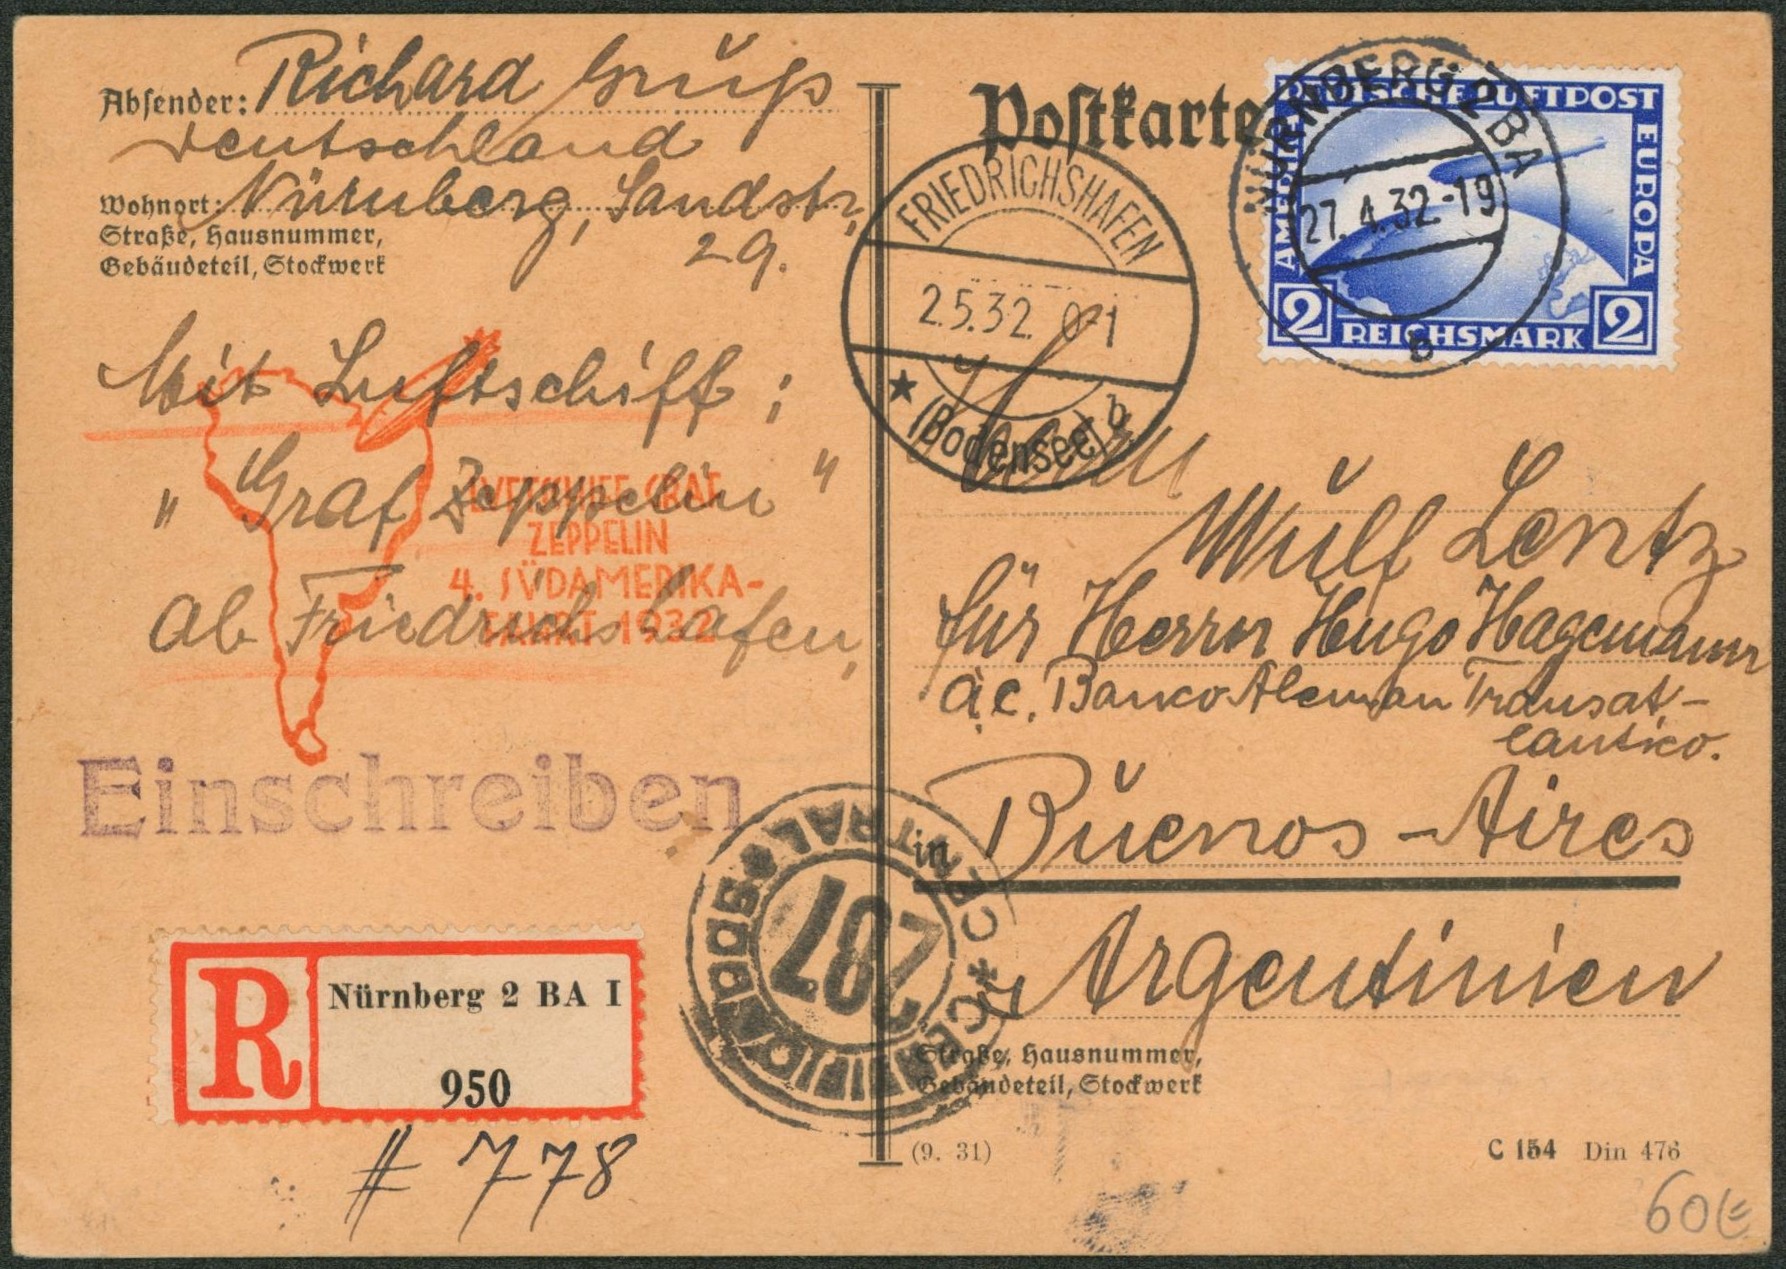 Absender: Richard Gruß
Deutschland
Wohnort: Nürnberg, Sandstr,
29.
Straße, Hausnummer,
Gebäudeteil, Stockwerk
Mit Luftschiff;
"Graf Zeppelin"
ab Friedrichshafen,
LUFTSCHIFF GRAF
ZEPPELIN
4. SÜDAMERIKA-
FAHRT 1932
Einschreiben
R
Nürnberg 2 BA I
950
# 778
Postkarte
DEUTSCHE LUFTPOST
EUROPA
AMERIKA
2 REICHSMARK 2
NÜRNBERG 2 BA
27.4.32.-19
FRIEDRICHSHAFEN
2.5.32. 0-1
(Bodensee) b
Wulf Lentz
für Herrn Hugo Hagemann
a.c. Banco Aleman Transat-
lantico.
in Buenos-Aires
Argentinien
CERTIFICADOS
CENTRAL
787
Straße, Hausnummer,
Gebäudeteil, Stockwerk
(9. 31)
C 154 Din 476
60€